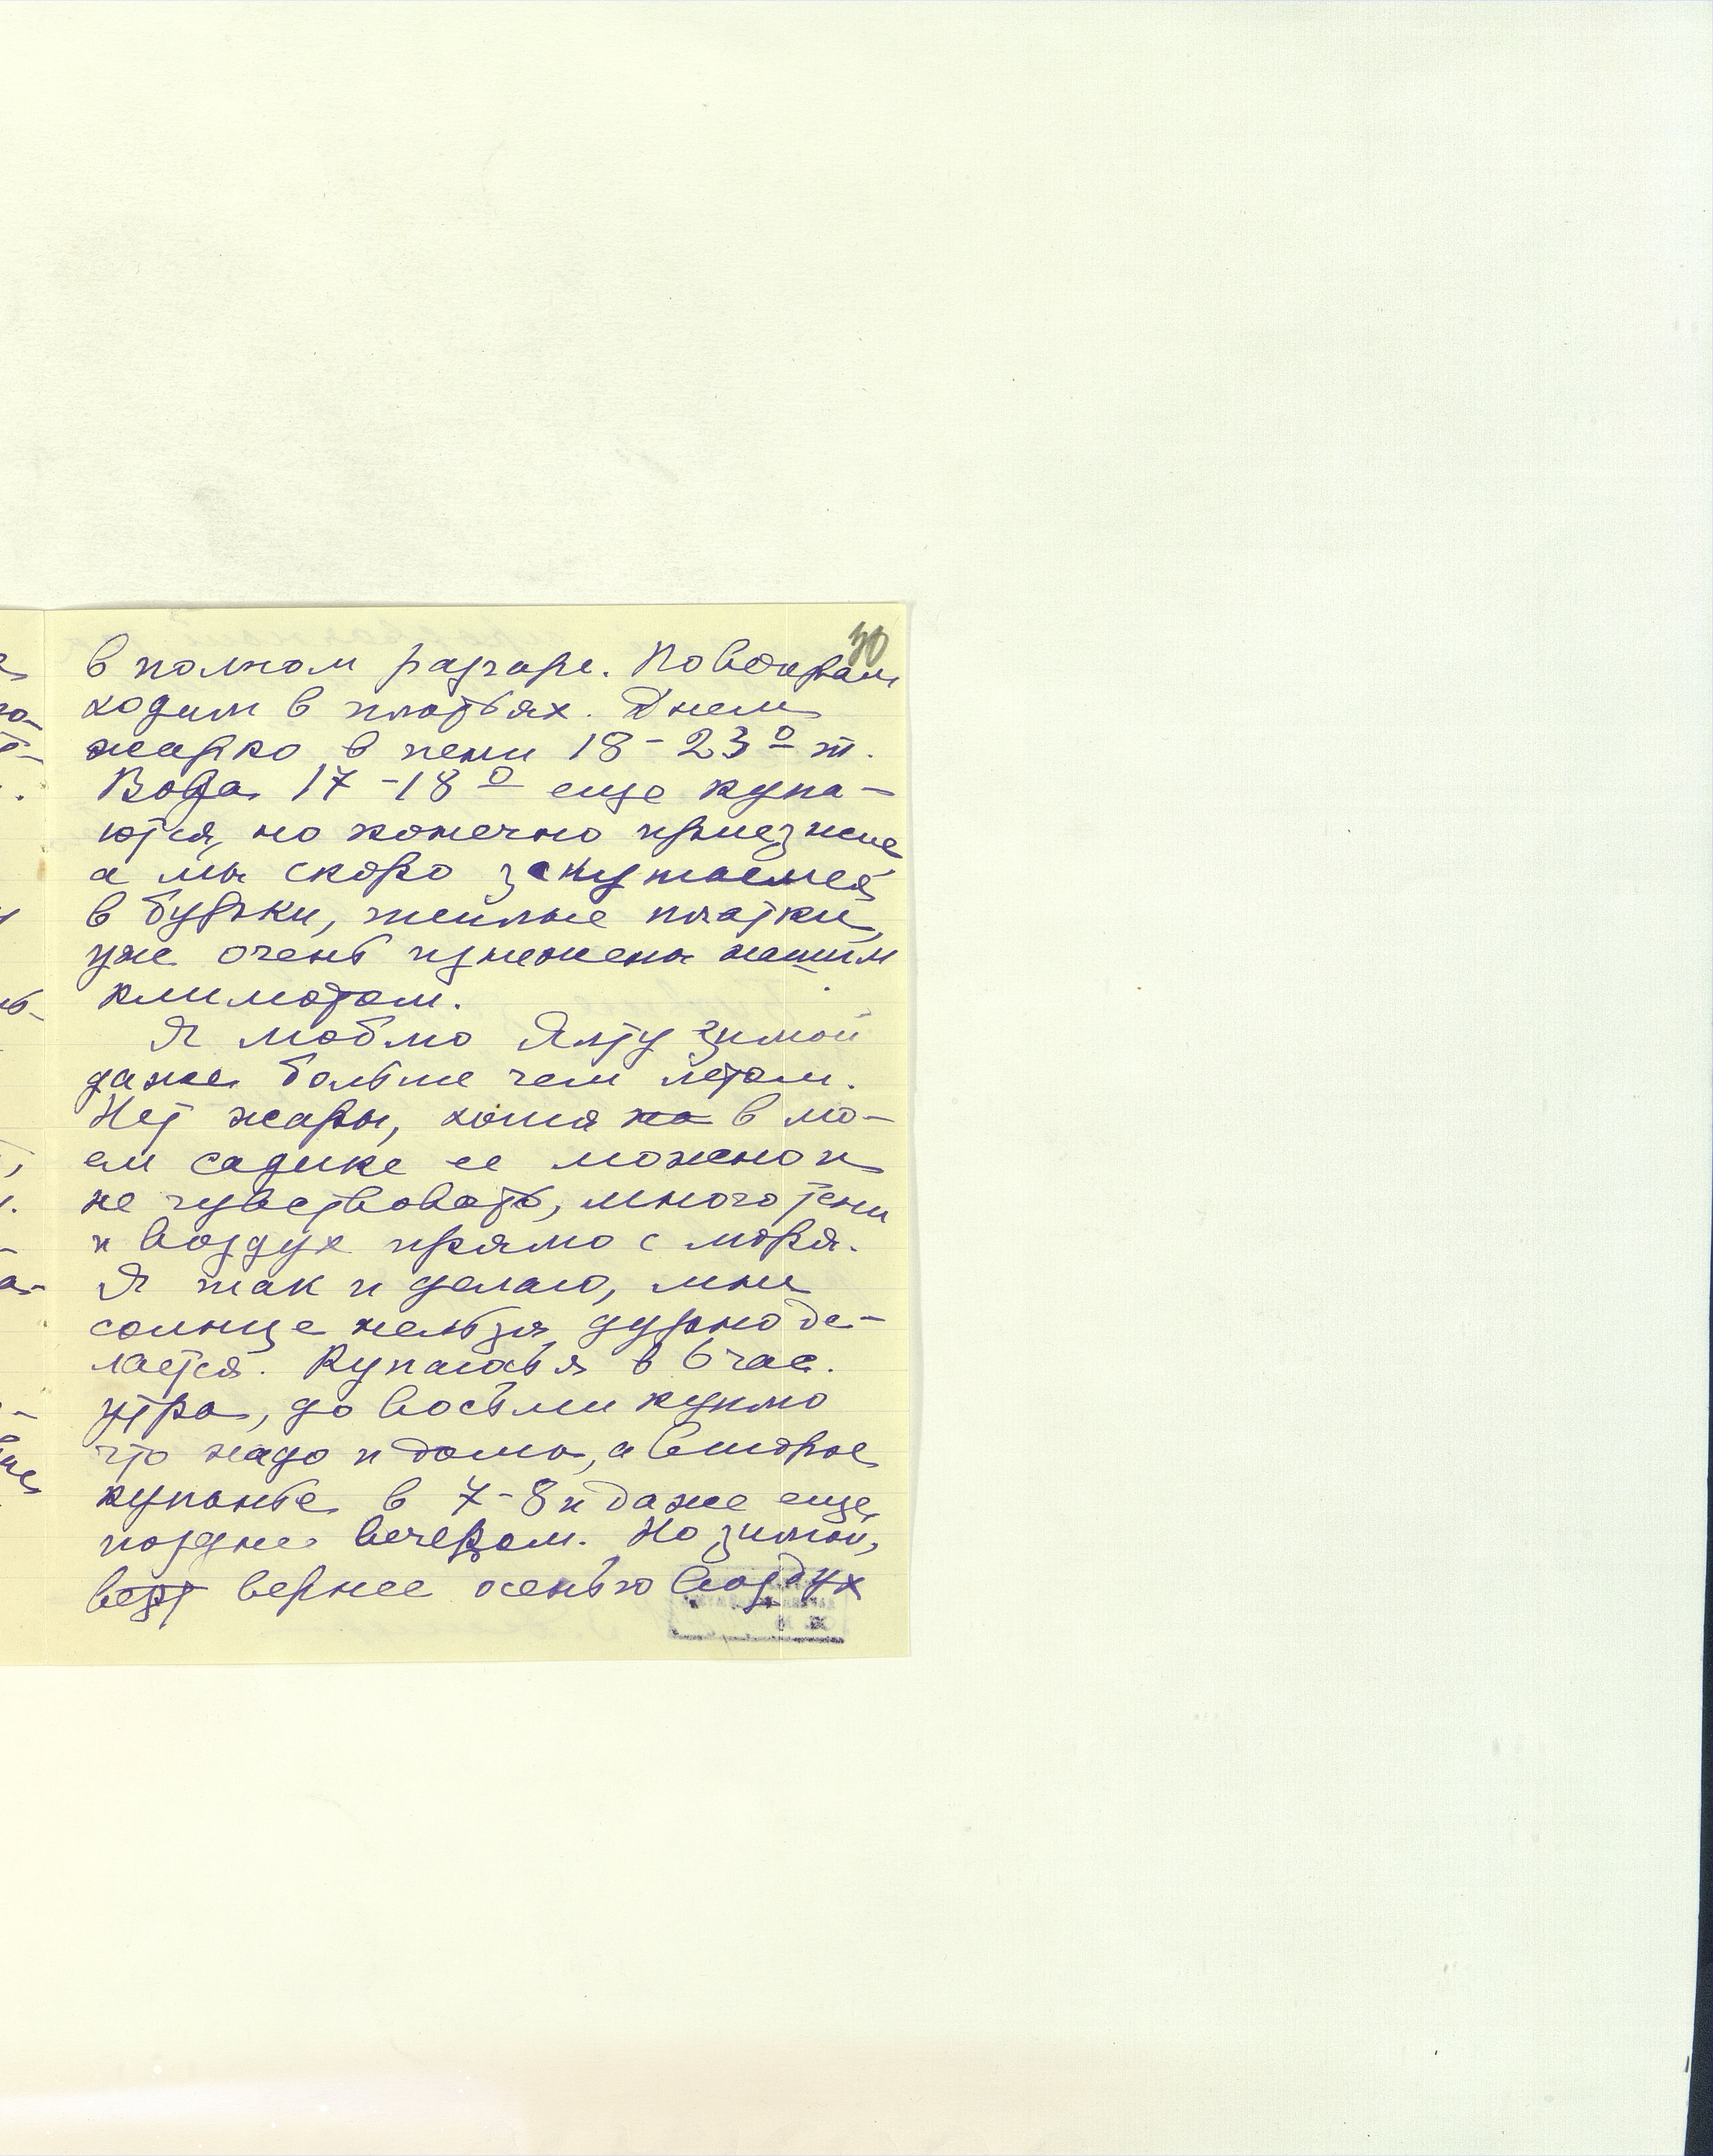 30
в полном разгаре. По вечерам
ходим в платьях. Днем
жарко в тени 18-23° т.
Вода 17-18° еще купа-
ются, но конечно приезжие
а мы скоро закутаемся
в бурки, теплые платки,
уже очень изнежены нашим
климатом.
Я люблю Ялту зимой
даже больше чем летом.
Нет жары, хотя на в мо-
ем садике ее можно и
не чувствовать, много тени
и воздух прямо с моря.
Я так и делаю, мне
солнце нельзя, дурно де-
лается. Купаюсь я в 6 час.
утра, до восьми куплю
что надо и дома, а второе
купанье в 7-8 и даже еще
позднее вечером. Но зимой,
вернее осенью воздух